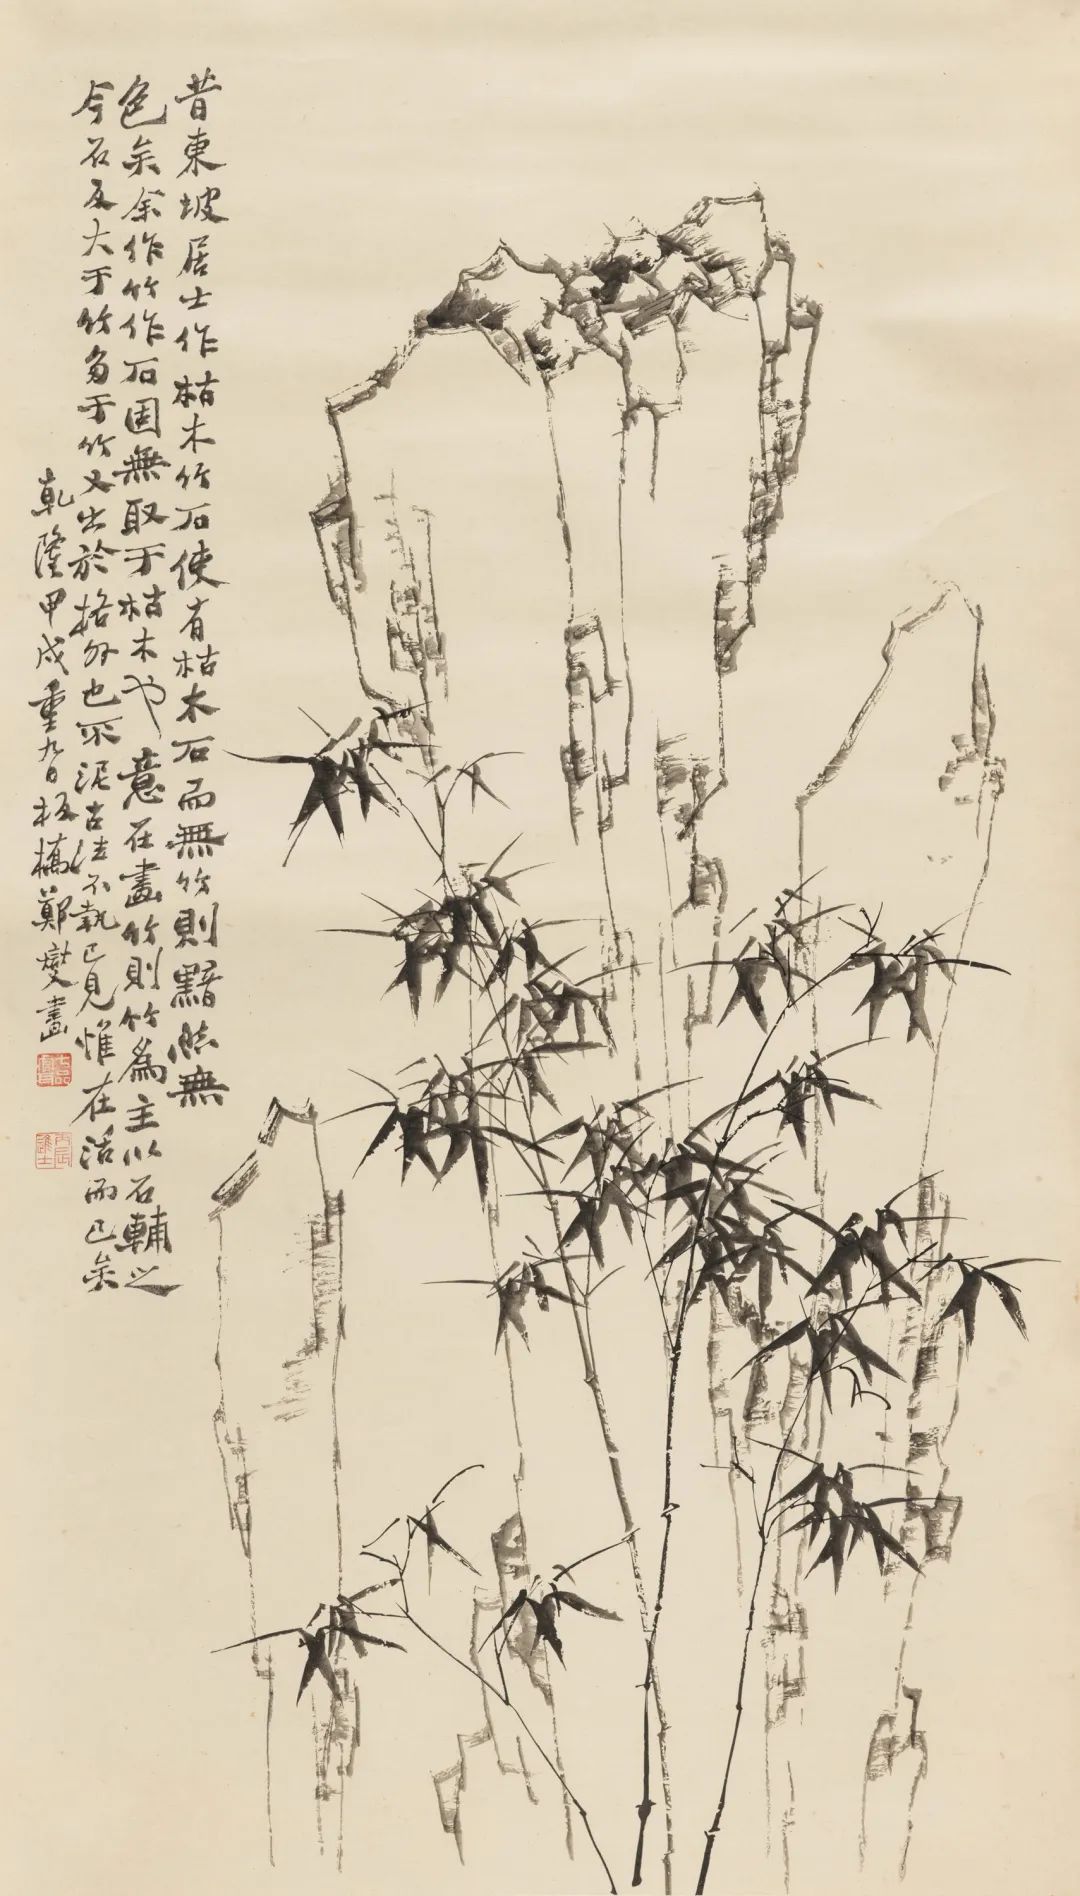 昔東坡居士作枯木竹石使有枯木石而無竹則黯然無
色矣余作竹作石固無取于枯木也意在畫竹則竹為主以石輔之
今石反大于竹多于竹又出於格外也不泥古法不執己見惟在活而已矣
乾隆甲戌重九日板橋鄭燮畫
丙辰進士